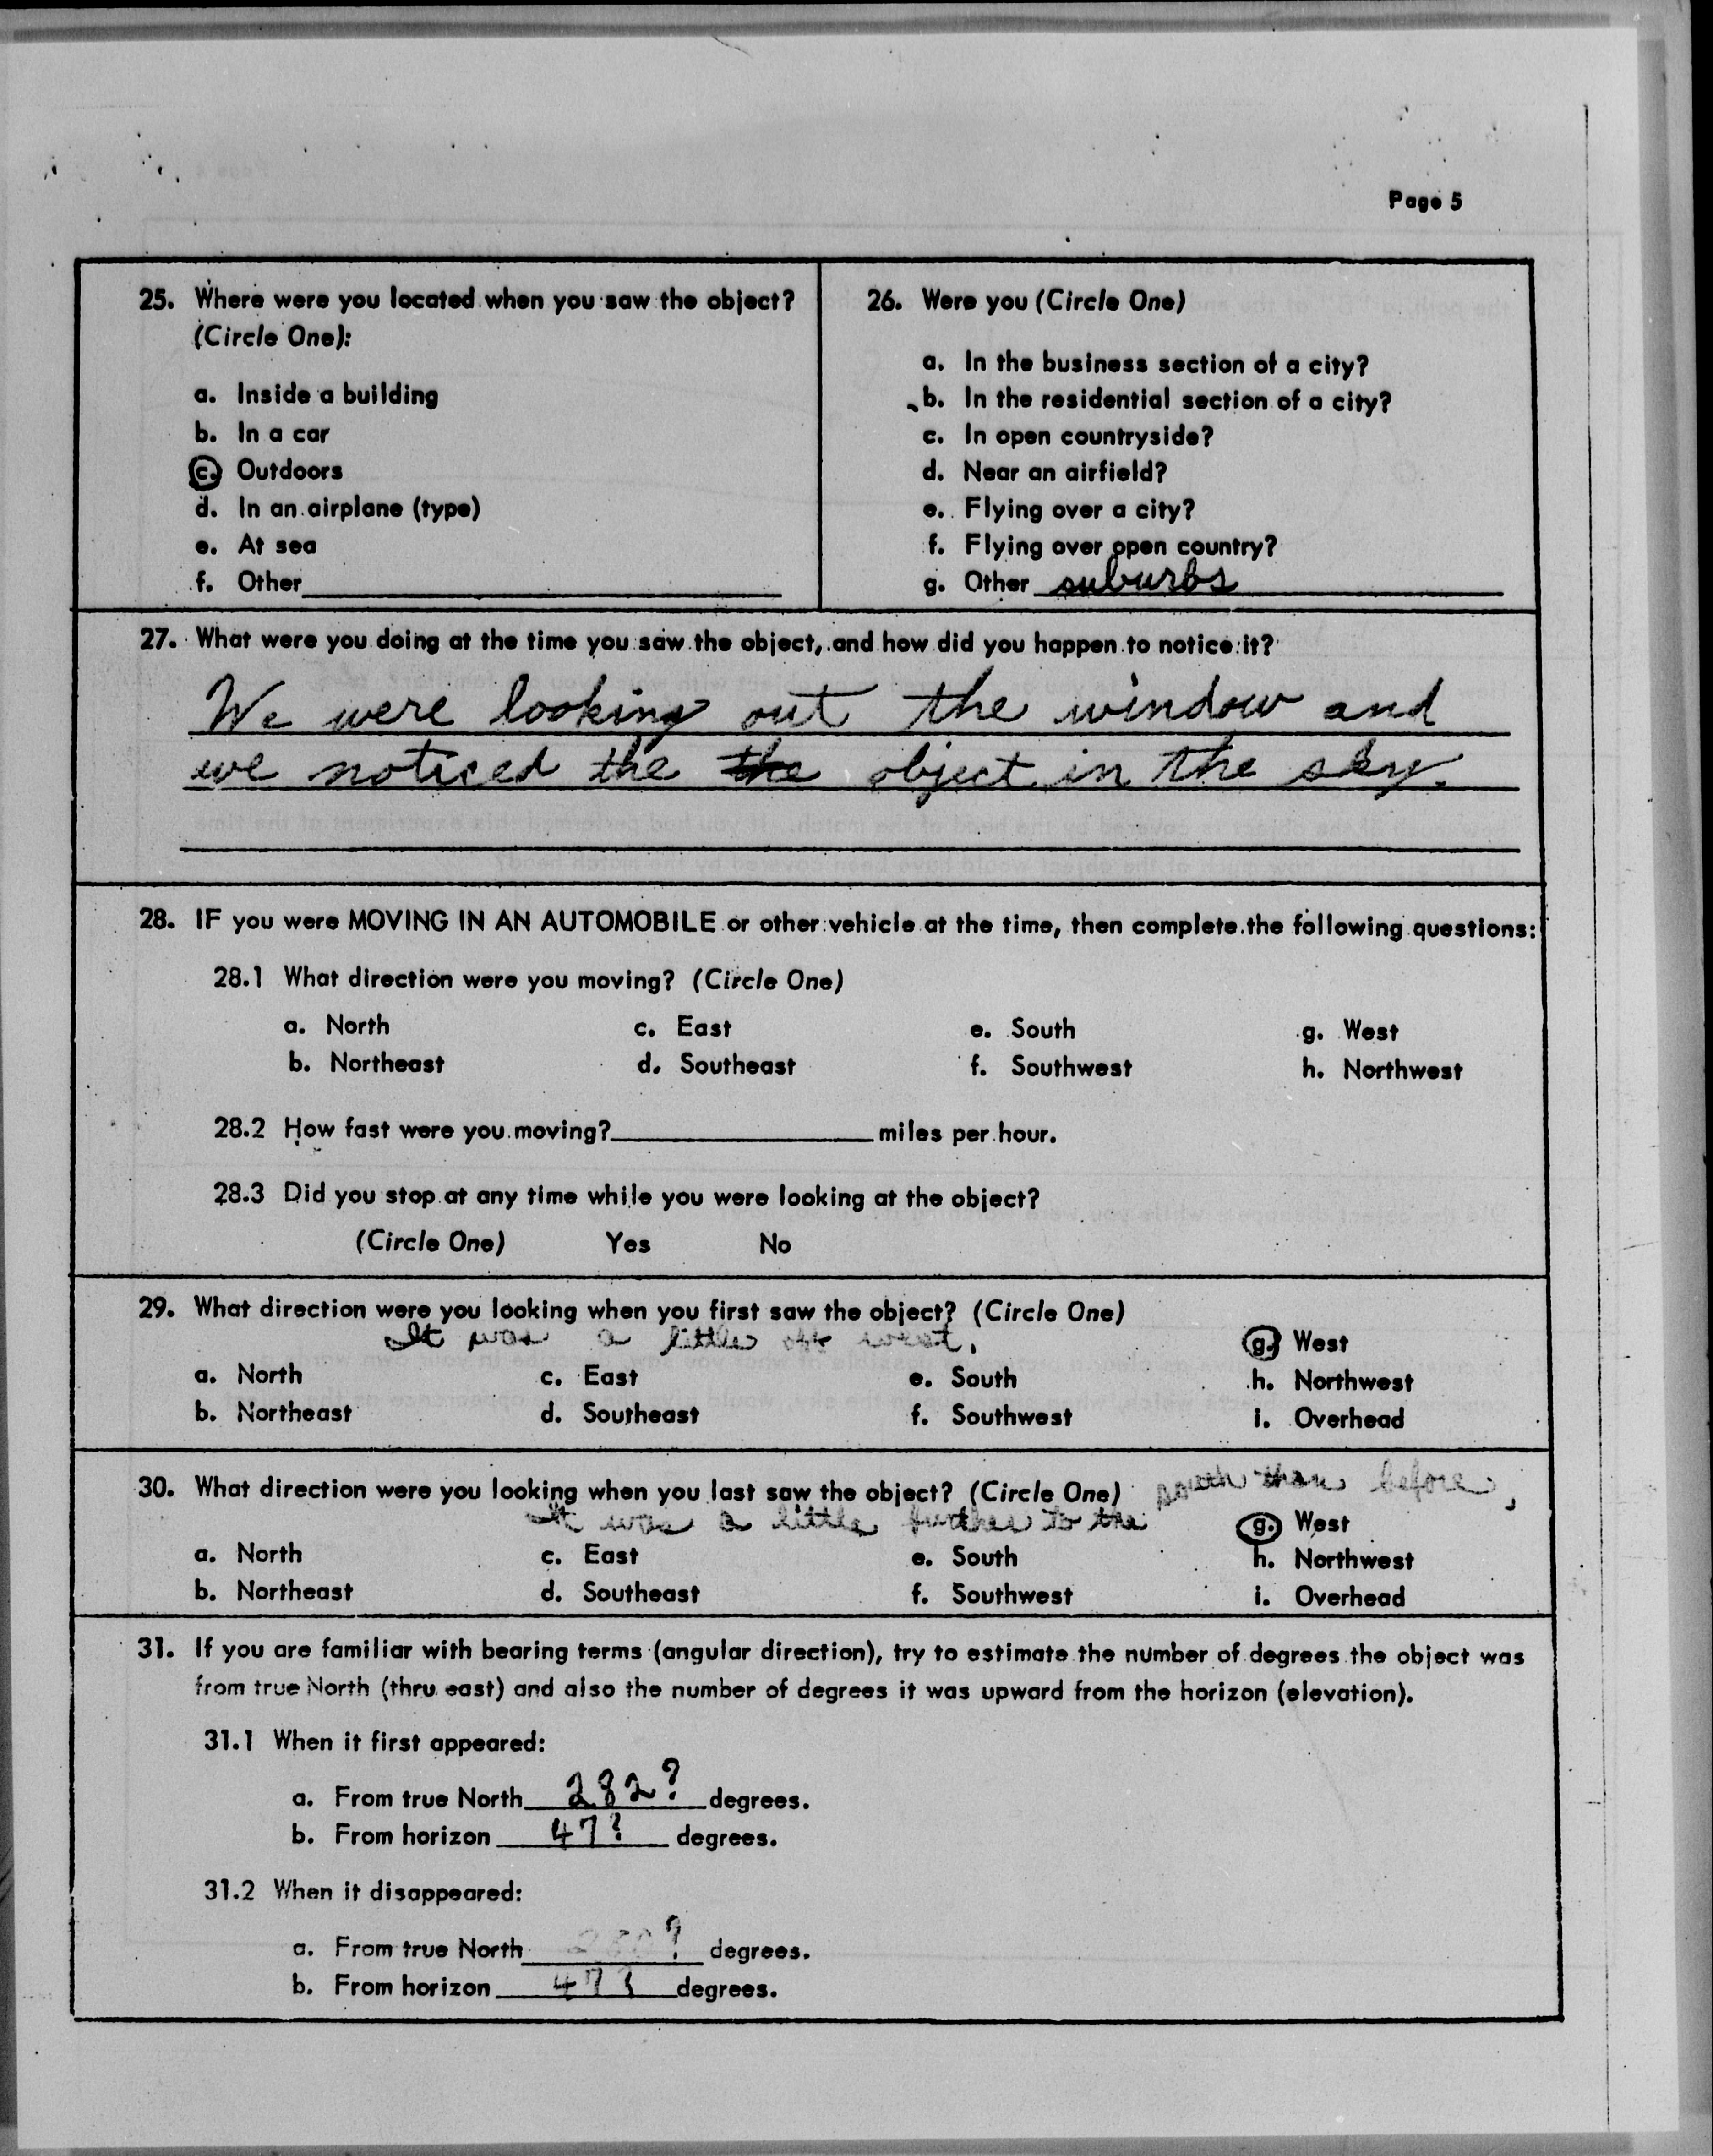 Page 5
25. Where were you located when you saw the object?
(Circle One):
a. Inside a building
b. In a car
c. Outdoors
d. In an airplane (type)
e. At sea
f. Other
26. Were you (Circle One)
a. In the business section of a city?
b. In the residential section of a city?
c. In open countryside?
d. Near an airfield?
e. Flying over a city?
f. Flying over open country?
g. Other suburbs
27. What were you doing at the time you saw the object, and how did you happen to notice it?
We were looking out the window and
we noticed the the object in the sky.
28. IF you were MOVING IN AN AUTOMOBILE or other vehicle at the time, then complete the following questions:
28.1 What direction were you moving? (Circle One)
a. North c. East e. South g. West
b. Northeast d. Southeast f. Southwest h. Northwest
28.2 How fast were you moving? miles per hour.
28.3 Did you stop at any time while you were looking at the object?
(Circle One) Yes No
29. What direction were you looking when you first saw the object? (Circle One)
It was a little off west. g. West
a. North c. East e. South h. Northwest
b. Northeast d. Southeast f. Southwest i. Overhead
30. What direction were you looking when you last saw the object? (Circle One) south than before,
It was a little further to the g. West
a. North c. East e. South h. Northwest
b. Northeast d. Southeast f. Southwest i. Overhead
31. If you are familiar with bearing terms (angular direction), try to estimate the number of degrees the object was
from true North (thru east) and also the number of degrees it was upward from the horizon (elevation).
31.1 When it first appeared:
a. From true North 282? degrees.
b. From horizon 47? degrees.
31.2 When it disappeared:
a. From true North degrees.
b. From horizon 47? degrees.